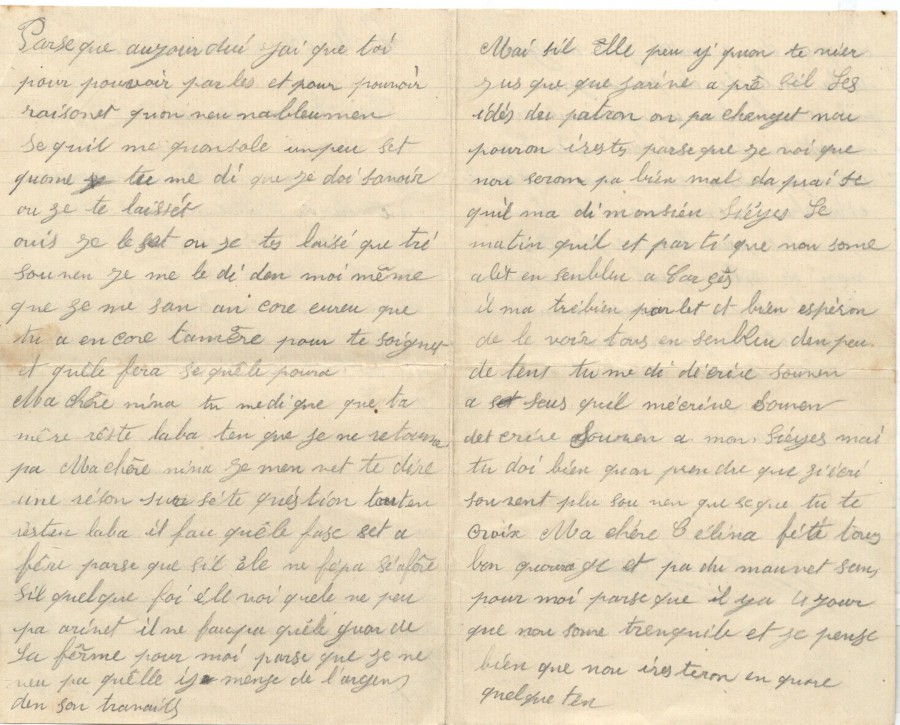 Parse que aujourdui jai que toi
pour pouvoir parles et pour pouvoir
raisonet quon neu nableumen
se quil me quonsole un peu set
quome tu me di que je doi savoir
ou je te laissét
ouis je le set ou je tes laisé que tré
souven je me le di den moi même
que je me san an core eureu que
tu a encore ta mère pour te soigner
et quêle fera se quêle poura
Ma chêre nina tu me di que que ta
mêre rêste laba ten que je ne retourne
pa Ma chêre nina je men vet te dire
une réson sur sête quéstion touten
résten laba il fau quêle fase set a
fêre parse que sil êle ne fépa sé afêre
sil quelque foi elle voi quele ne peu
pa arivet il ne faupa quêle guarde
la fêrme pour moi parse que je ne
veu pa quêlle menge de l'argens
den son travails
Mai sil Elle peu y quon te nier
jus que que jarive a prê sil les
idés du patron on pa changet nou
pouron i rests parse que je voi que
nou serom pa bien mal daprai se
quil ma di monsieu Siéyes le
matin quil et parti que nou some
alét en senbleu a Carçês
il ma trê bien parlet et bien espéron
de le voir tous en senbleu den peu
de tens tu me di décrire souven
a seus quil mécrive souven
det crire souven a mon Siéyes mai
tu doi bien quon prendre que jécri
souvent plu sou ven que se que tu te
croix Ma chére Célina féte tous
bon quourage et pa du mauvet sens
pour moi parse que il y a 4 jour
que nou some trenquile et je pense
bien que nou iresteron en quore
quelque ten